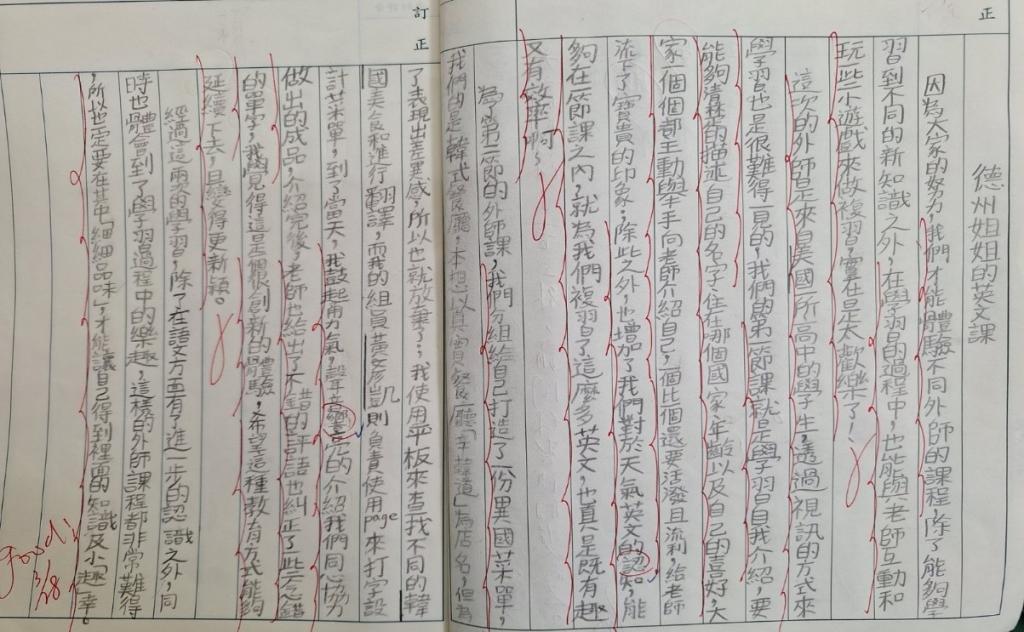 正
德州姐姐的英文課
因為大家的努力，我們才能體驗不同外師的課程，除了能夠學
習到不同的新知識之外，在學習的過程中，也能與老師互動和
玩些小遊戲來做複習，實在是太歡樂了！
這次的外師是來自美國一所高中的學生，透過視訊的方式來
學習也是很難得一見的，我們的第一節課就是學習自我介紹，要
能夠清楚的描述自己的名字、住在那個國家、年齡以及自己的喜好，大
家一個個都主動舉手向老師介紹自己，一個比一個還要活潑且流利，給老師
流下了寶貴的印象，除此之外，也增加了我們對於天氣英文的認知，能
夠在一節課之內，就為我們複習了這麼多英文，也真是既有趣
又有效率啊～
為了第二節的外師課，我們分組給自己打造了一份異國菜單，
我們的是「韓式餐廳」，本想以真實餐廳「」為店名，但為
了表現出差異感，所以也就放棄了，我使用平板來查找不同的韓
國美食和進行翻譯，而我的組員黃彥凱則負責使用page來打字設
計菜單，到了當天，我鼓起勇氣，聲音響亮的介紹我們同心協力
做出的成品，介紹完後，老師也給出了不錯的評語也糾正了些念錯
的單字，我覺得這是個很創新的體驗，希望這種教育方式能夠
延續下去，且變得更新穎。
經過這兩次的學習，除了在語文方面有了進一步的認識之外，同
時也體會到了學習過程中的樂趣，這樣的外師課程都非常難得
，所以一定要在其中「細細品味」，才能讓自己得到裡面的知識及小趣事。
訂正
Good!
3/28